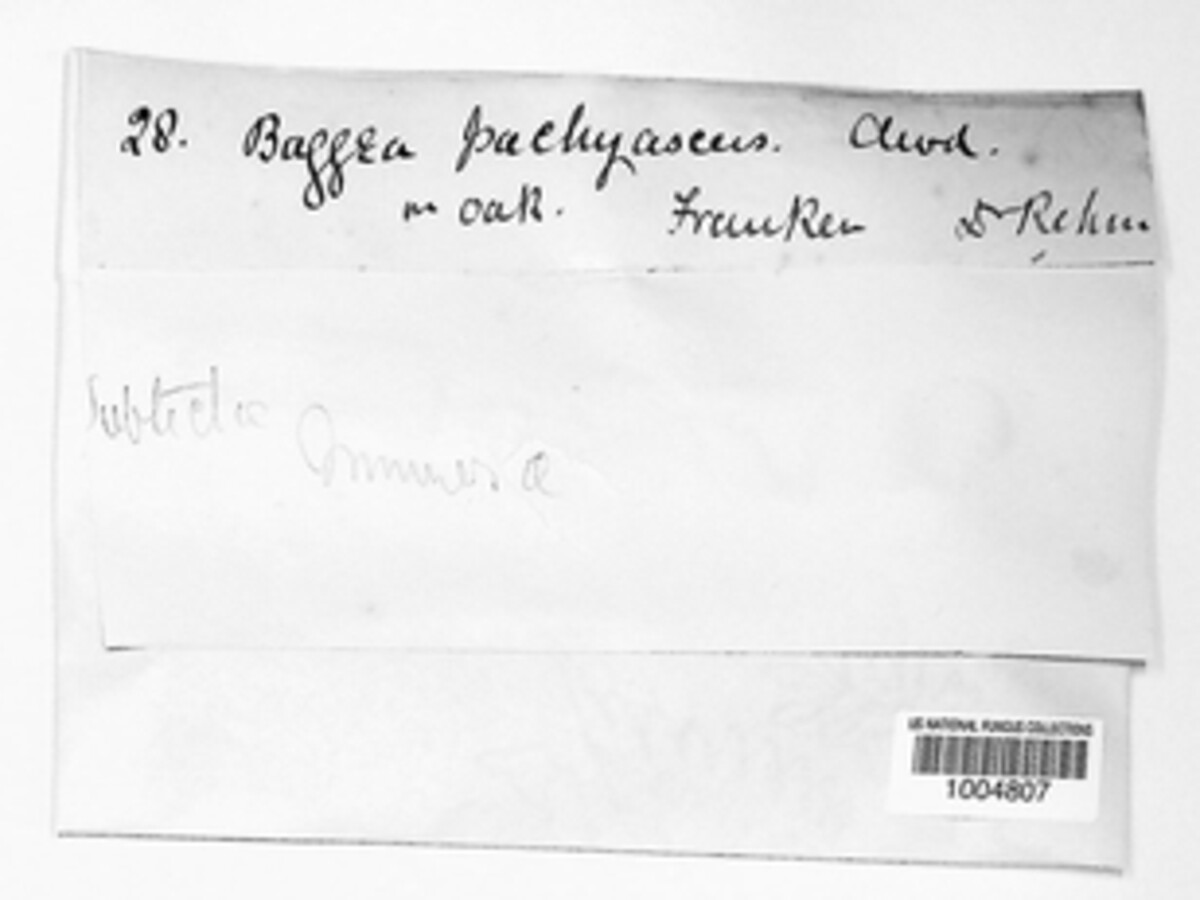 28. Baggea pachyascus. Awd.
on oak. Franken Dr Rehm
US NATIONAL FUNGUS COLLECTIONS
1004807